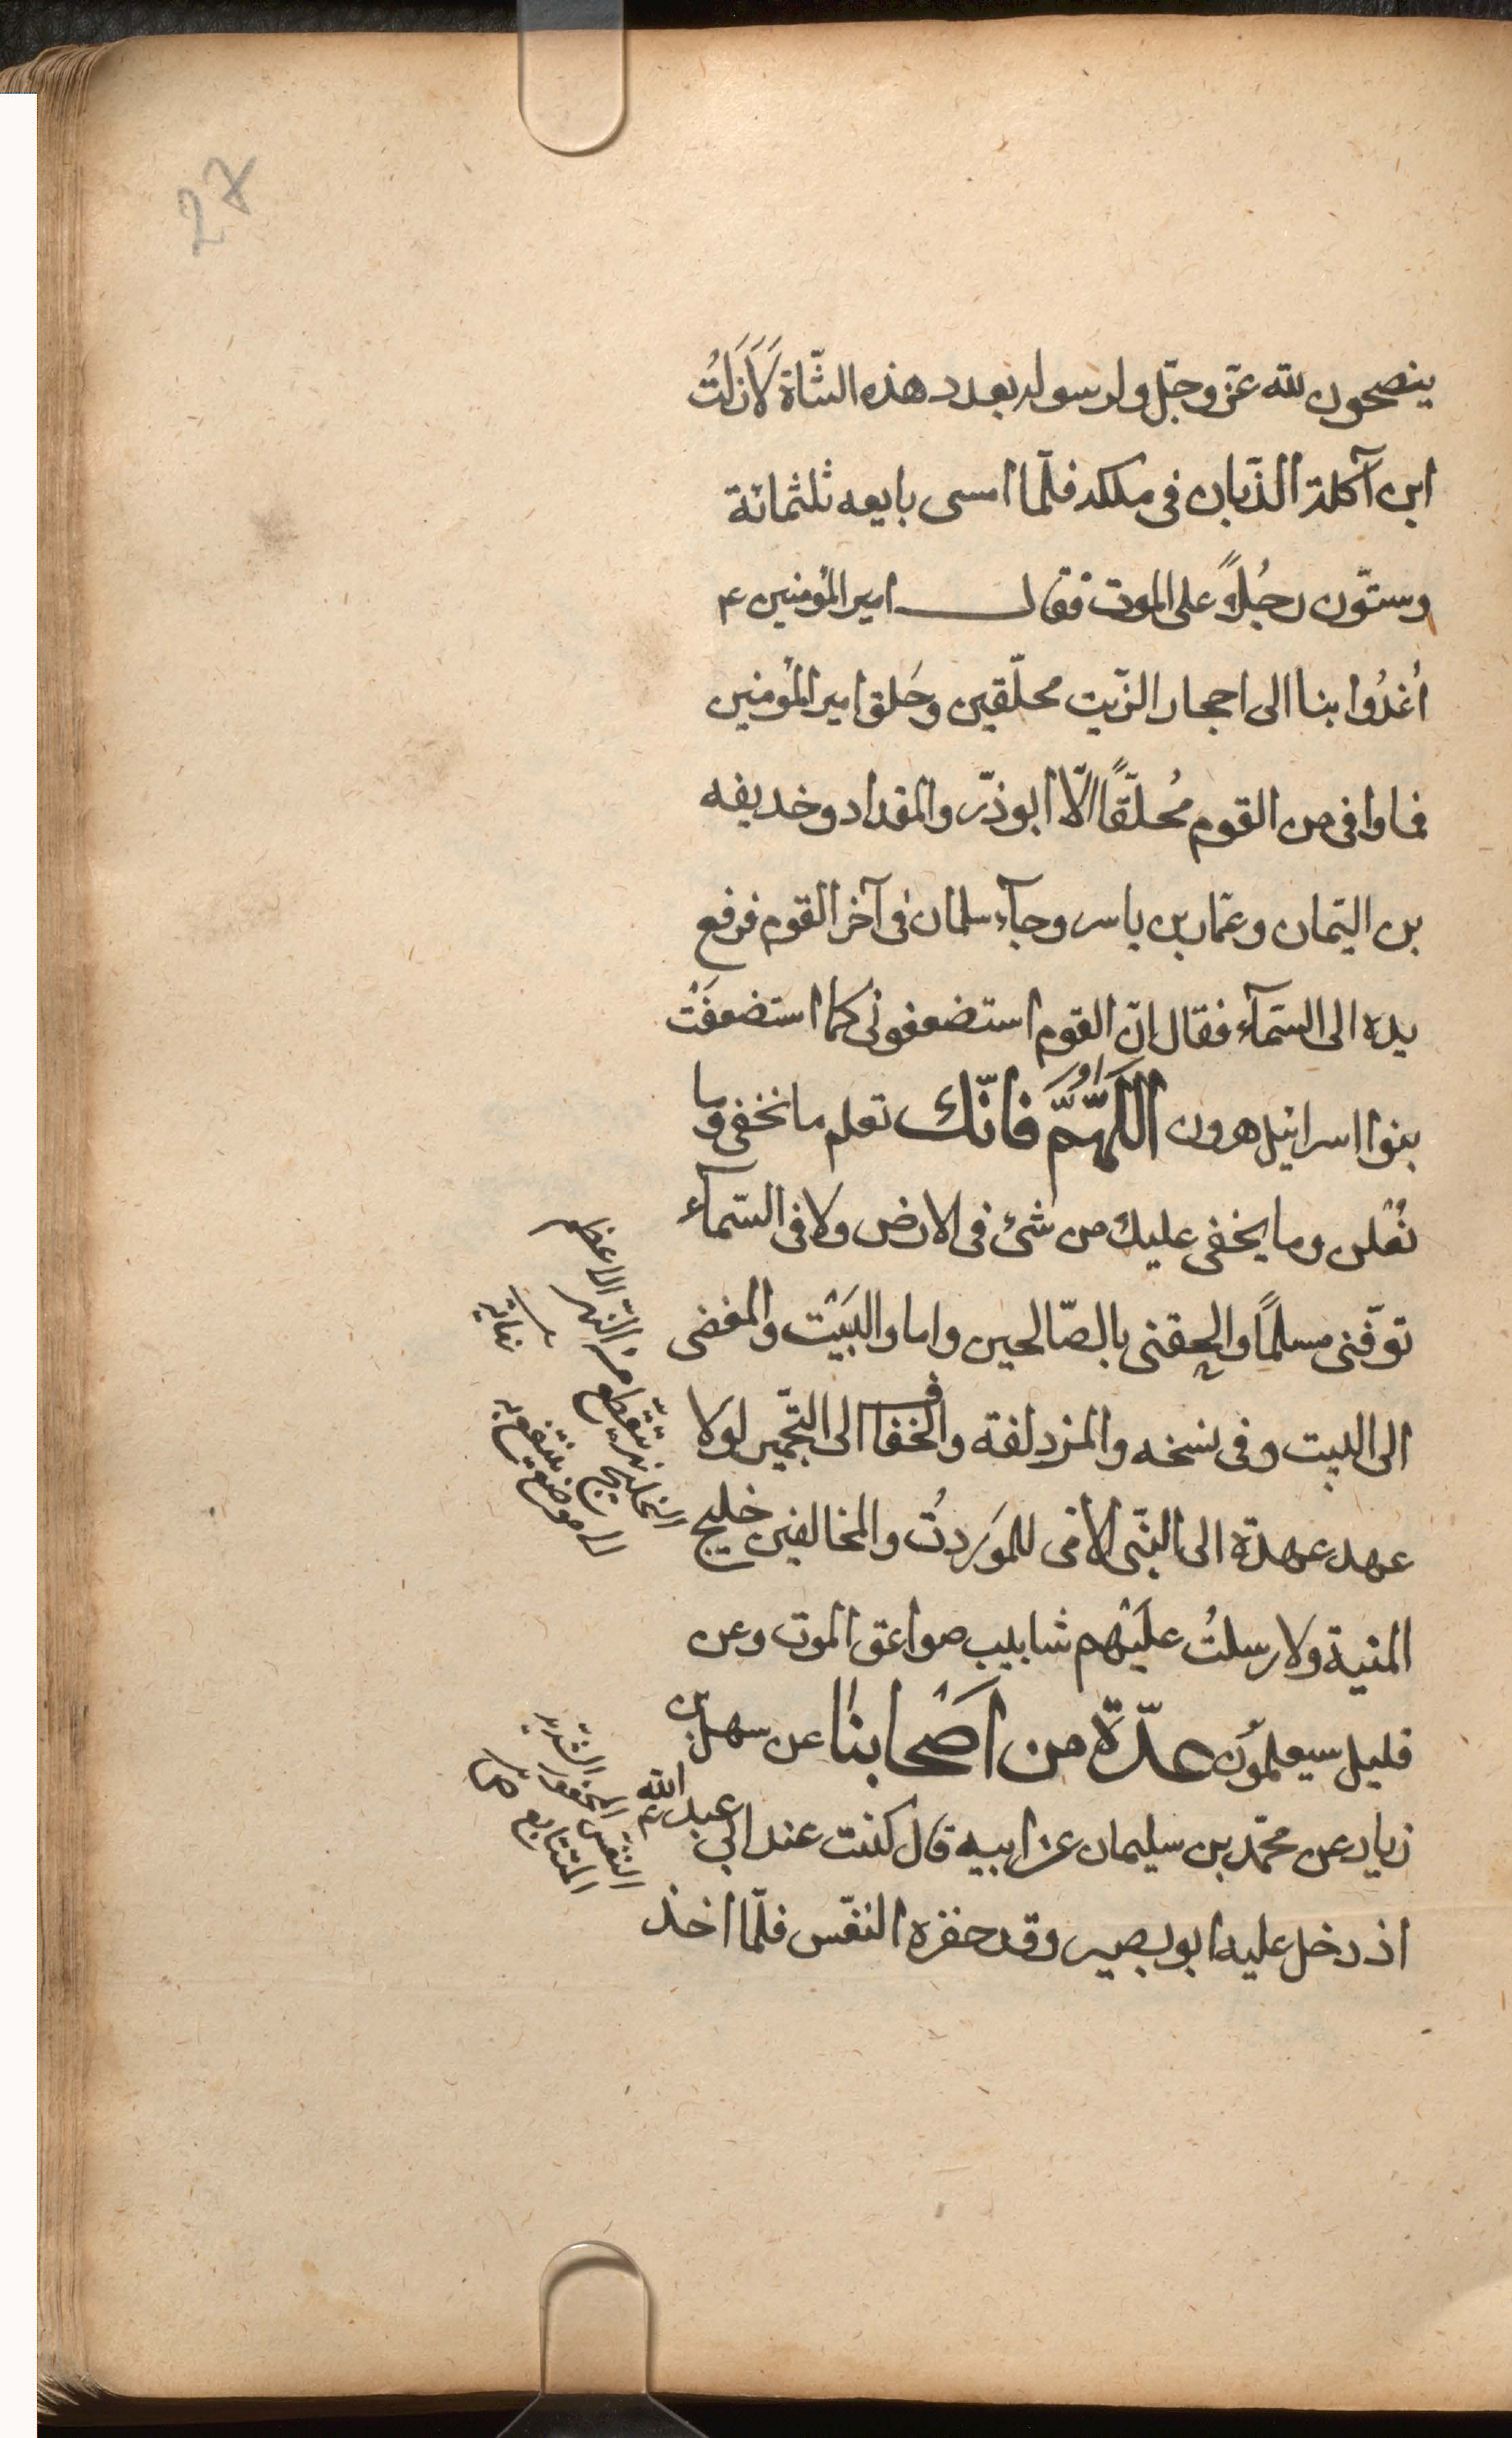 27
ينصحون لله عزّ وجلّ ولرسوله بعدد هذه الشّاة لَأَزَلتُ
ابن آكلة الذّبان فى ملكه فلمّا امسى بايعه ثلثمائة
وستّون رجُلاً على الموت فقال امير المؤمنين ع
اُغدُوا بنا الى احجار الزّيت محلّقين وحَلق امير المؤمنين
فما وافى من القوم مُحلّقاً الّا ابوذّر والمقداد وخديفه
بن اليمان وعمّار بن ياسر وجآء سلمان فى آخر القوم فرفع
يده الى السّمآء فقال انّ القوم استضعفونى كما استضعفَتْ
بنوا اسرائيل هرون اللّهمّ فانّك تعلم ما نخفى وما
نُعْلن وما يخفى عليك من شئ فى الارض ولا فى السّمآء
توفّنى مسلماً والحقنى بالصّالحين واما والبَيْت والمفضى
الى البيت وفى نسخه والمزدلفة والخفاف الى التّجمير لولا
عهد عهدة الى النّبى الامى للموَردتُ والمخالفين خليج
المنية ولارسلتُ علَيْهم شابيب صواعق الموت وعن
قليل سيعلموُن عدّة من اَصْحابنا عن سهل بن
زياد عن محمّد بن سليمان عن ابيه قال كنت عند ابى عبد الله ع
اذ دخل عليه ابو بصير وقد حفزه النفّس فلمّا اخذ
الخليج نهر يقتطع من النّهر الاعظم
الى موضع ينتفع به
نهاية
النفس المحفوز الشديد
المتتابع ص